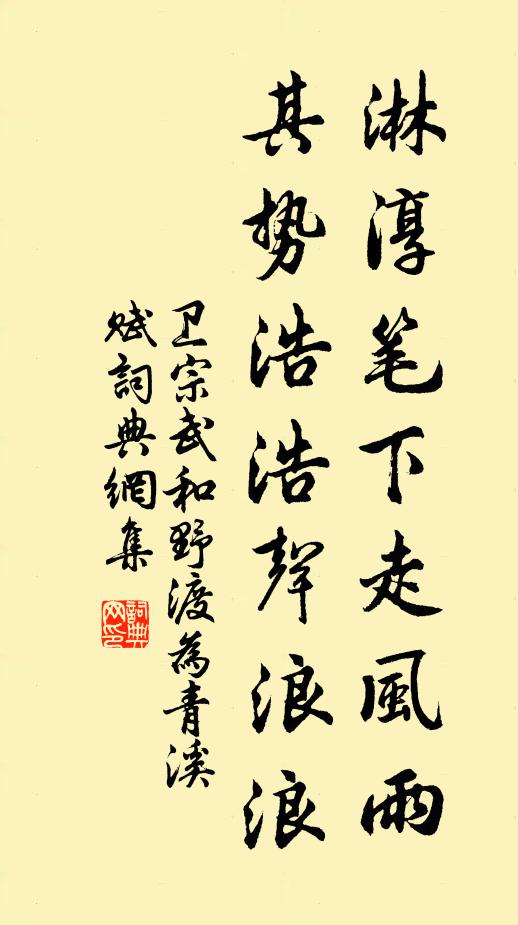 淋淳笔下走風雨
其势浩浩聲浪浪
卫宗武和野渡為青溪
賦詞典網集
詞典網印